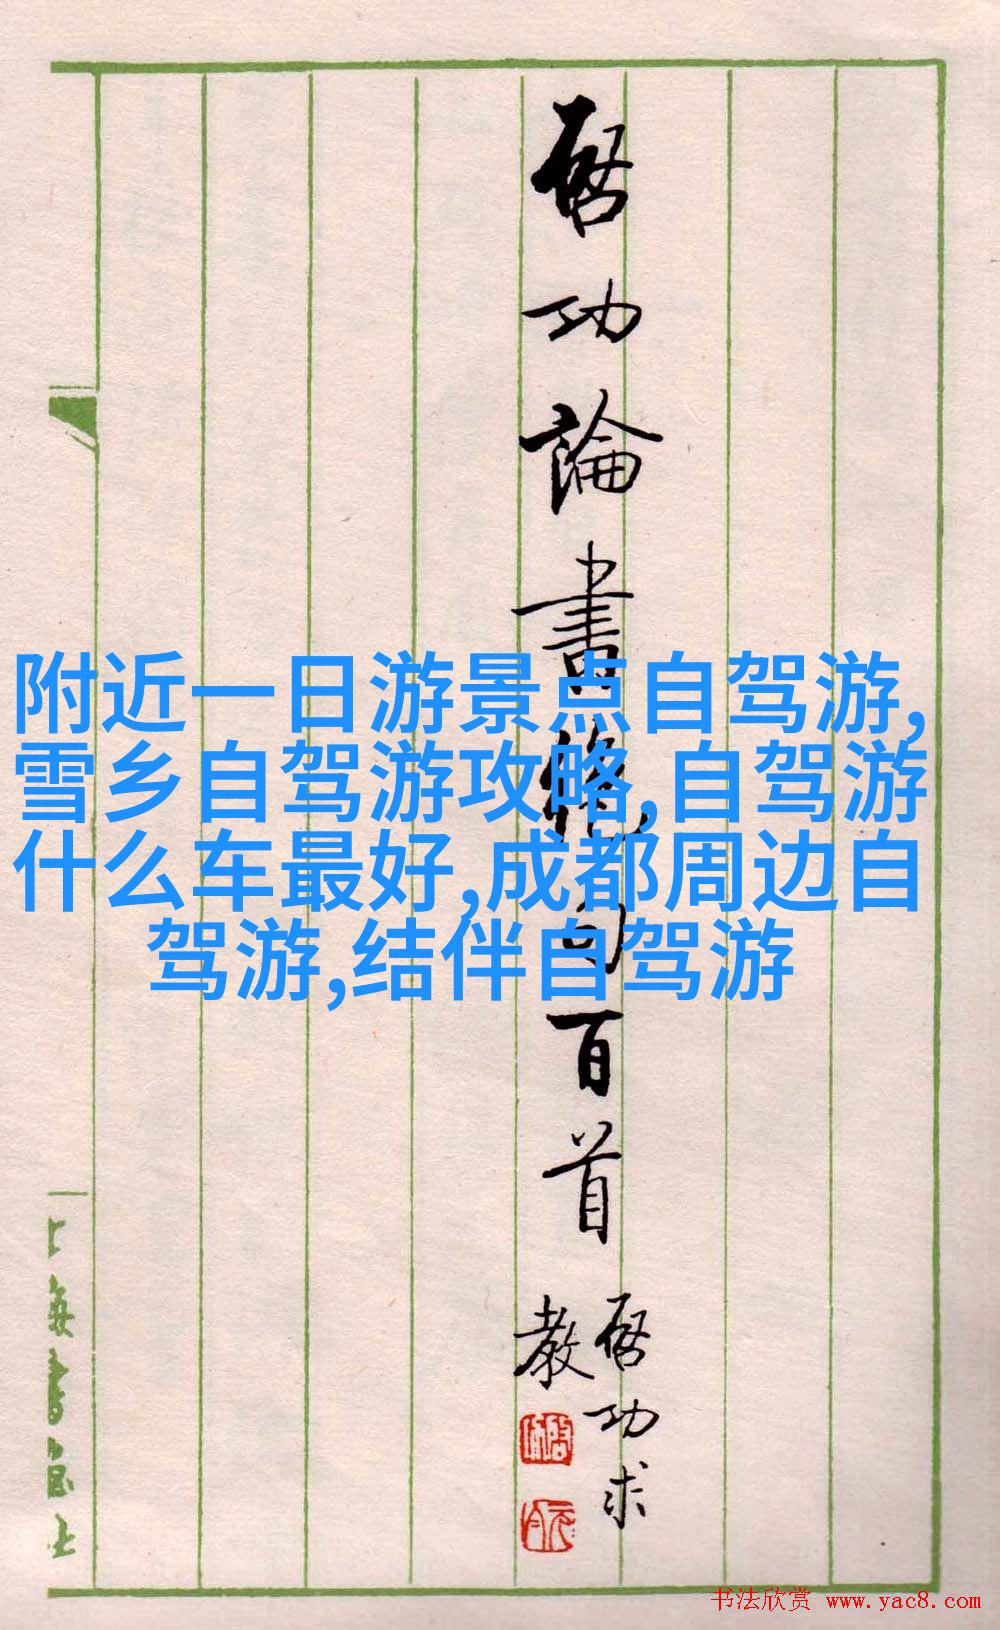 启功論書絶句百首
启功求
教
附近一日游景点自驾游,
雪乡自驾游攻略,自驾游
什么车最好,成都周边自
驾游,结伴自驾游
上海書画社
书法欣赏 www.yac8.com